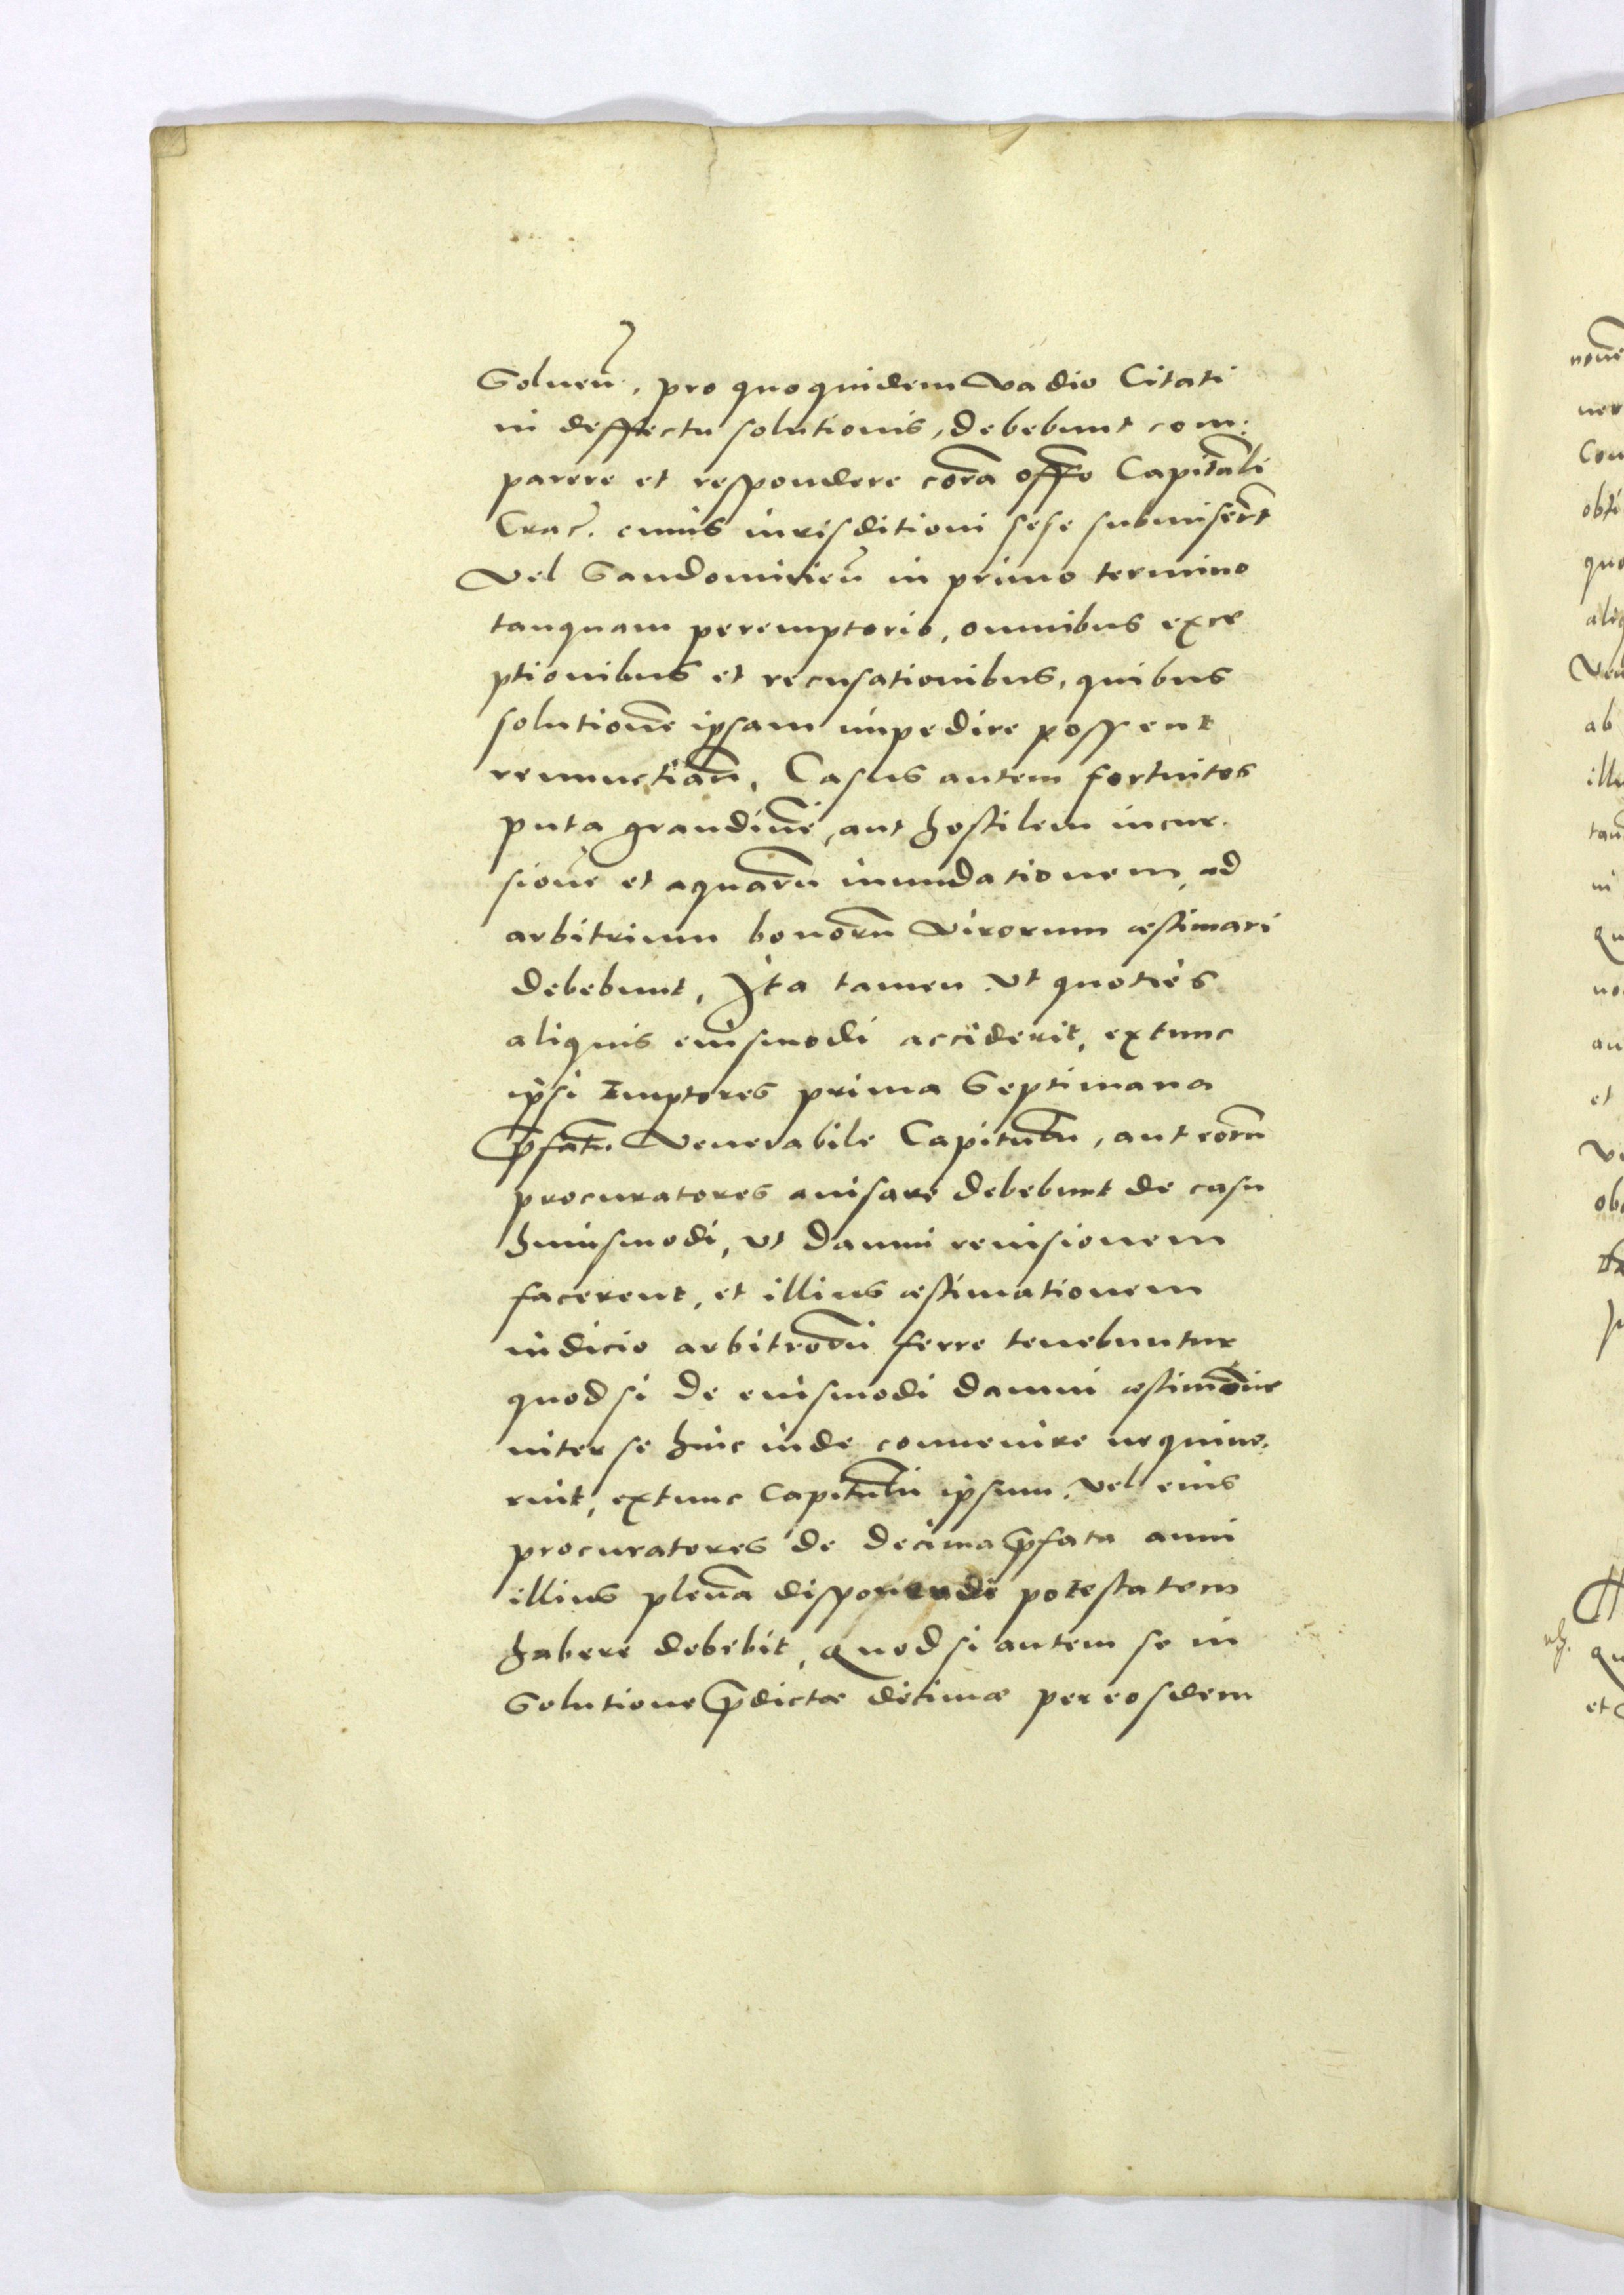 Soluen̄. pro quo quidem Vadio Citati
in deffectu solutionis, debebunt com:
parere et respondere corā offo Capitłali
Crac̄. cuius iurisditioni sese submiser̄t
Vel Sandomirien̄ in primo termino
tanquam peremptorio, omnibus exce
ptionibus et recusationibus, quibus
solutionē ipsam impedire possent
renunctian̄, Casus autem fortuitos
puta grandinē, aut hostilem incur.
sionē et aquarū inundationem, ad
arbitrium bonorū Virorum æstimari
debebunt, Ita tamen Ut quoties
aliquis eiusmodi acciderit, extunc
ipsi Emptores prima Septimana
p̄fatū Venerabile Capitulū, aut eorū
procuratores auisare debebunt de casu
huiusmodi, ut damni reuisionem
facerent, et illius æstimationem
iudicio arbitrorū ferre tenebuntur
quod si de eiusmodi damni æstimōne
inter se hinc inde conuenire nequiue.
rint, extunc Capitulū ipsum Vel eius
procuratores de decima p̄fata anni
illius plenā disponendi potestatem
habere debebit, Quod si autem se in
Solutione p̄dictæ decimæ per eosdem